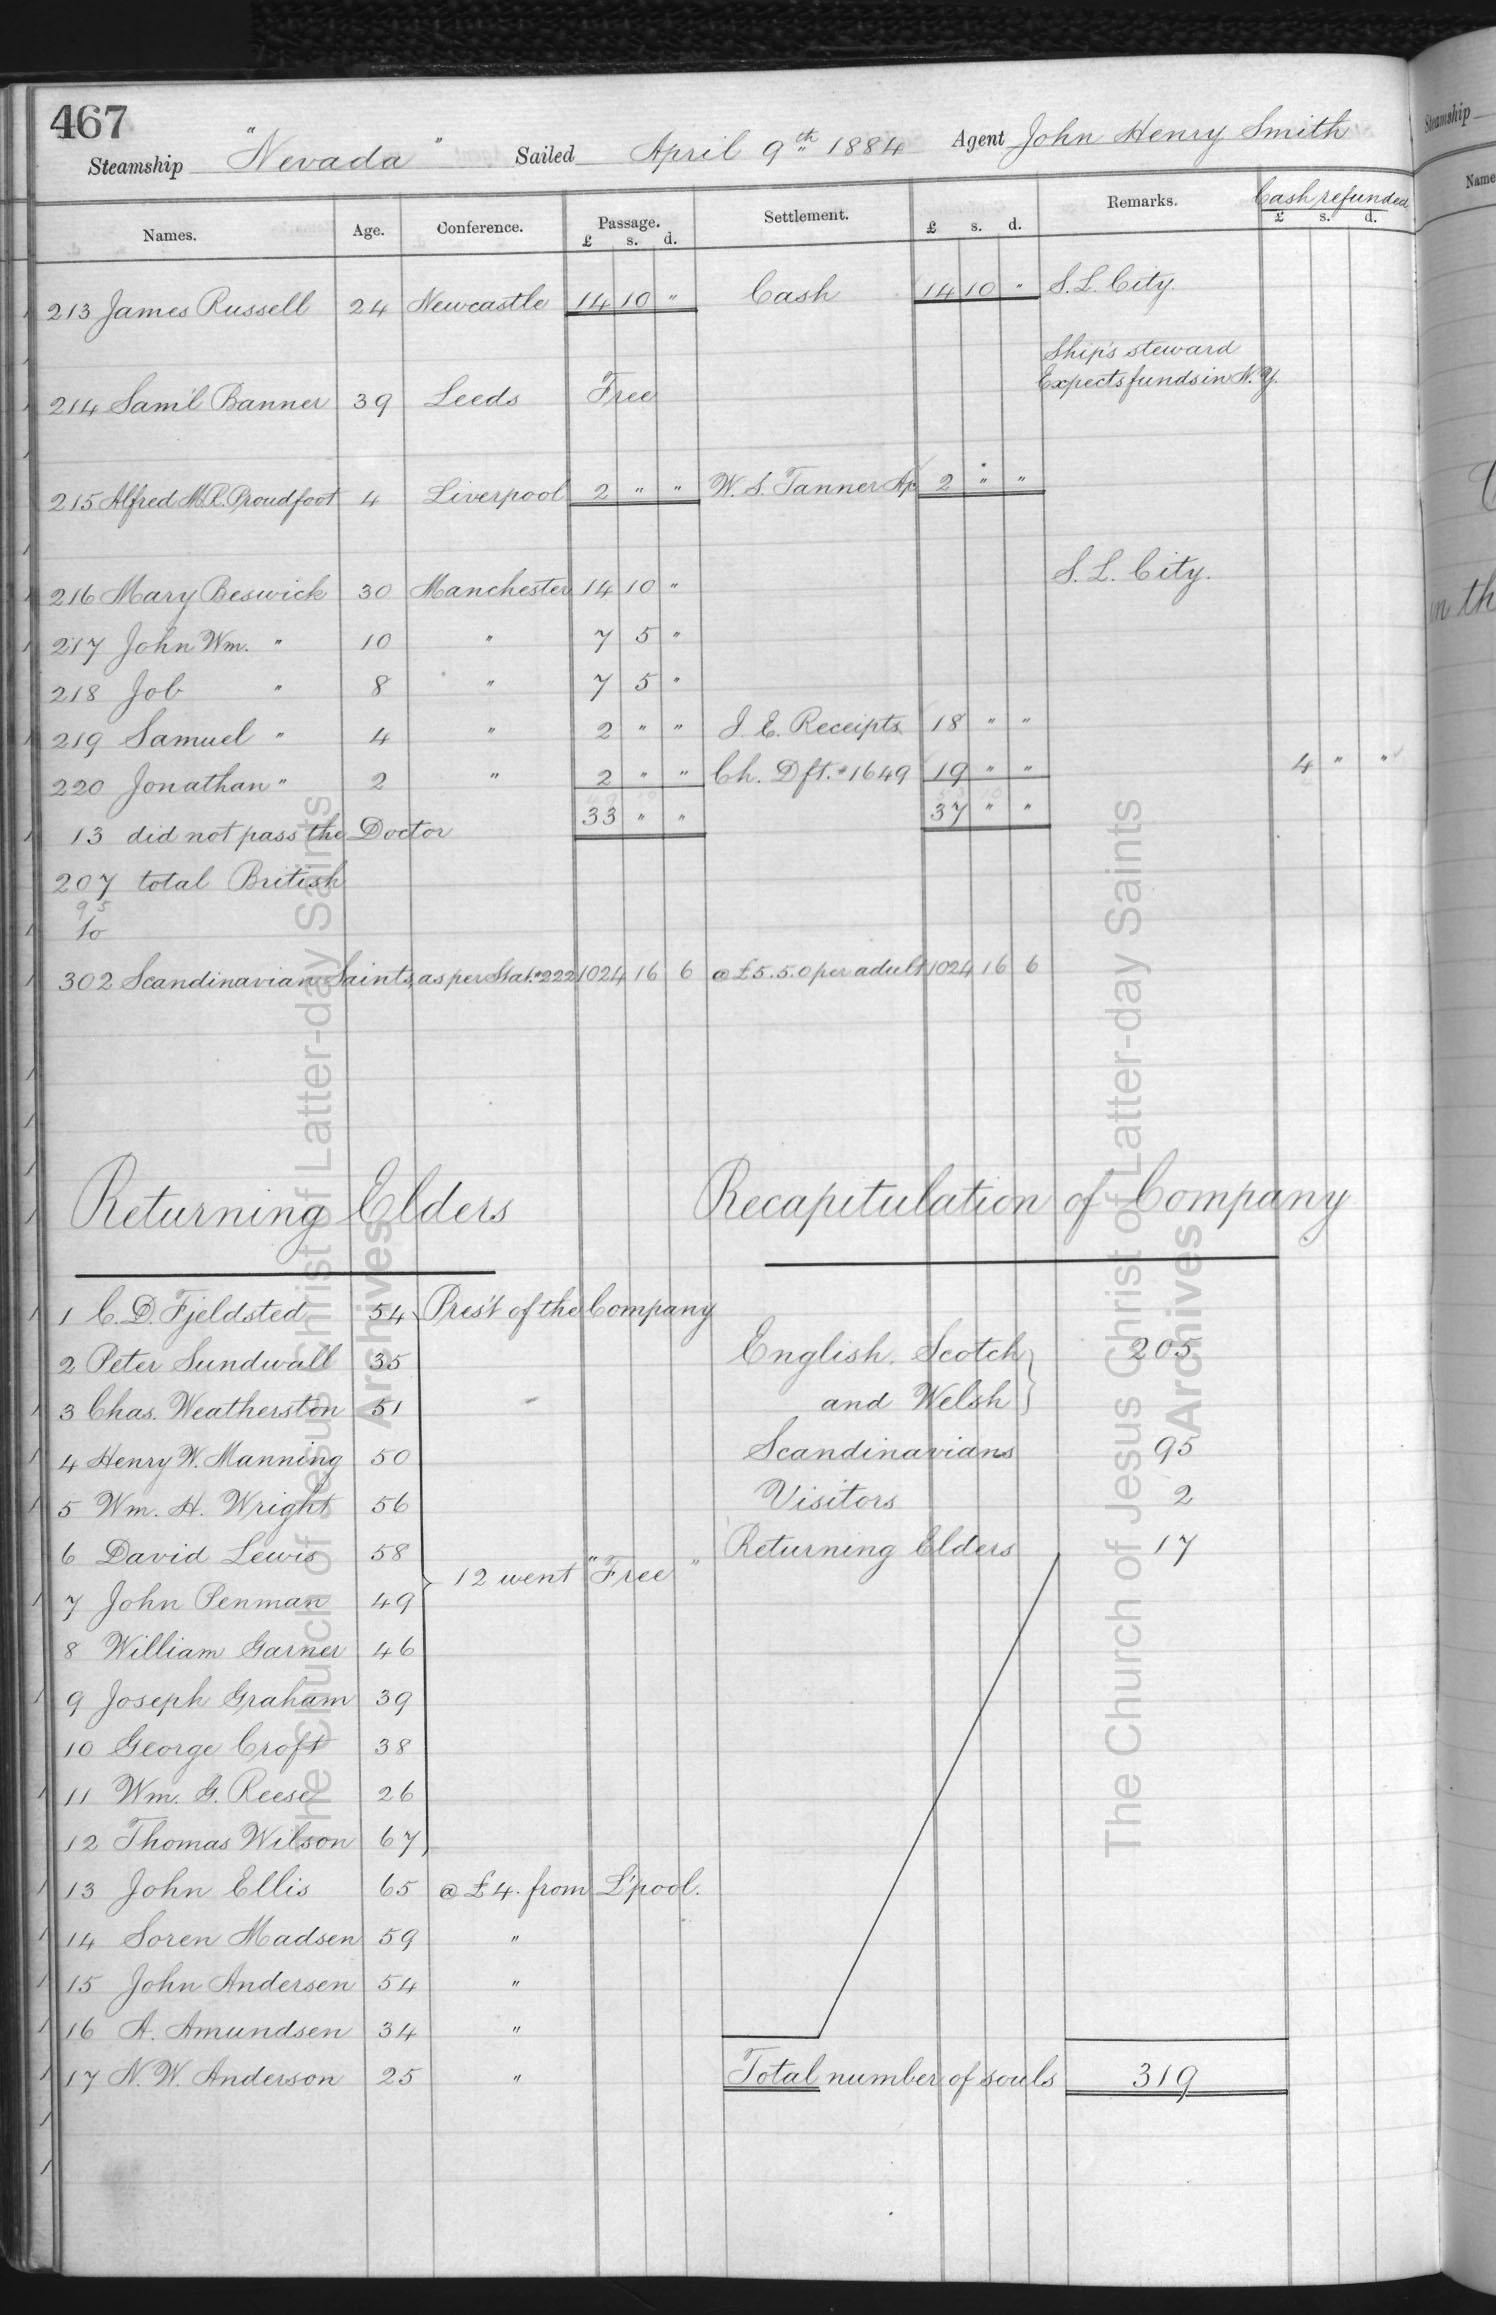 467
Steamship "Nevada" Sailed April 9th 1884 Agent John Henry Smith
Names. Age. Conference. Passage. Settlement. Remarks. Cash refunded
£ s. d. £ s. d. £ s. d.
213 James Russell 24 Newcastle 14 10 " Cash 14 10 " S. L. City.
Ship's steward
Expects funds in N. Y.
214 Sam'l Banner 39 Leeds Free
215 Alfred M. R. Proudfoot 4 Liverpool 2 " " W. S. Tanner 2 " "
216 Mary Beswick 30 Manchester 14 10 " S. L. City.
217 John Wm. " 10 " 7 5 "
218 Job " 8 " 7 5 "
219 Samuel " 4 " 2 " " I. E. Receipts 18 " "
220 Jonathan " 2 " 2 " " Ch. Dft. #1649 19 " " 4 " "
13 did not pass the Doctor 33 " " 37 " "
207 total British
95
302 Scandinavian Saints, as per Stat. #222 1024 16 6 @ £5.5.0 per adult 1024 16 6
Returning Elders
Recapitulation of Company
1 C. D. Fjeldsted 54 Pres't of the Company
2 Peter Sundwall 35
3 Chas. Weatherston 51
4 Henry W. Manning 50
5 Wm. H. Wright 56
6 David Lewis 58
7 John Penman 49
12 went "Free"
8 William Garner 46
9 Joseph Graham 39
10 George Croft 38
11 Wm. G. Reese 26
12 Thomas Wilson 67
13 John Ellis 65 @ £4. from L'pool.
14 Soren Madsen 59 "
15 John Andersen 54 "
16 A. Amundsen 34 "
17 N. W. Anderson 25 "
English. Scotch 205
and Welsh
Scandinavians 95
Visitors 2
Returning Elders 17
Total number of souls 319
The Church of Jesus Christ of Latter-day Saints
Archives
The Church of Jesus Christ of Latter-day Saints
Archives
Steamship
Name
in th